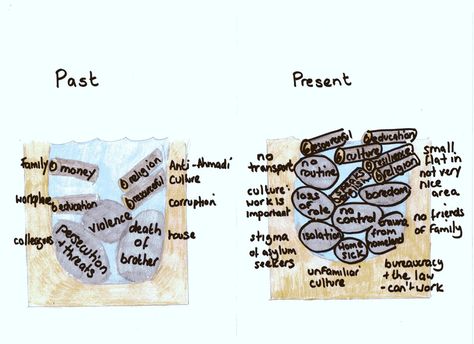 Past
Family
money
religion
resourceful
Anti-Ahmadi
culture
education
violence
corruption
colleagues
persecution
+ threats
death
of
brother
house
Present
education
culture
resilience
religion
small
flat in
not very
nice
area
no
transport
no
routine
boredom
culture:
work is
important
loss
of
role
no
control
from
homeland
no friends
or family
isolation
home
sick
stigma
of asylum
seekers
unfamiliar
culture
bureaucracy
+ the law
- can't work